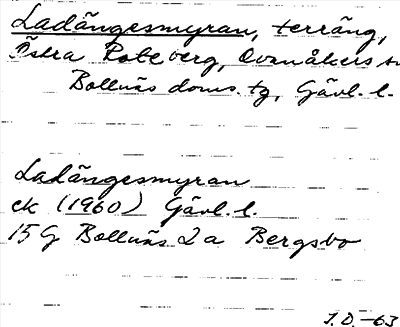 Ladängesmyran, terräng,
Östra Roteberg, Ovanåkers
Bollnäs doms. tg, Gävl. l.
Ladängesmyran
ek (1960) Gävl. l.
15 G Bollnäs 2 a Bergsbo
I.D.-63